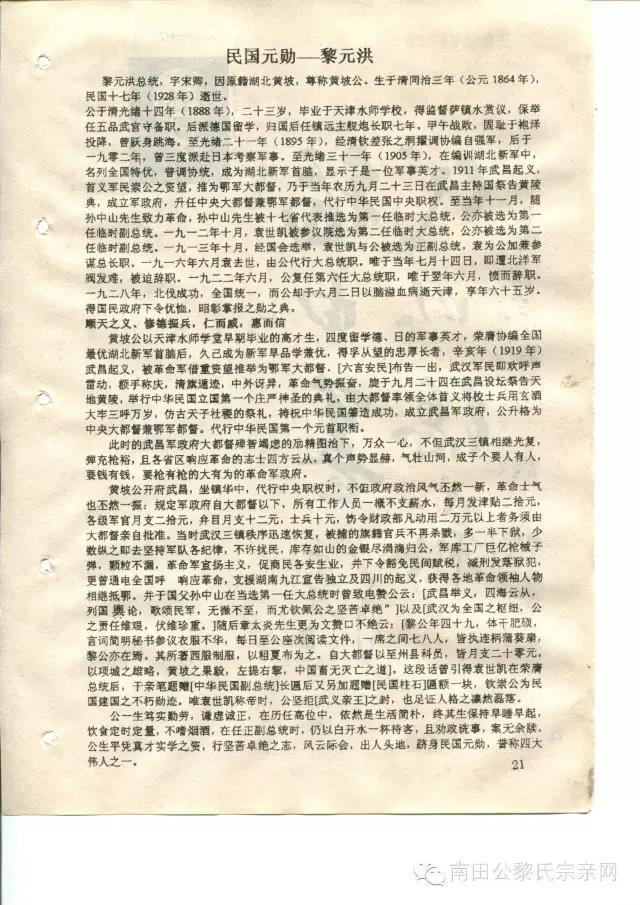 民国元勋——黎元洪
黎元洪总统，字宋卿，因原籍湖北黄坡，尊称黄坡公。生于清同治三年（公元1864年），
民国十七年（1928年）逝世。
公于清光绪十四年（1888年），二十三岁，毕业于天津水师学校，得监督萨镇水赏议，保举
任五品武官守备职。后派德国留学，归国后任镇远主舰炮长职七年。甲午战败，固耻于袍泽
投降，曾跃身跳海。至光绪二十一年（1895），经清钦差张之洞擢调协编自强军，后于
一九零二年，曾三度派赴日本考察军事。至光绪三十一年（1905），在编训湖北新军中，
名列全国特优，普调协统，成为湖北新军首脑，显示于是一位军事英才。1911年武昌起义，
首义军民崇公之资望，推为鄂军大都督，乃于当年农历九月二十三日在武昌主持国祭告黄陵
典，成立军政府，升任中央大都督兼鄂军都督，代行中华民国中央职权。至当年十一月，随
孙中山先生致力革命，孙中山先生被十七省代表推选为第一任临时大总统，公亦被选为第一
任临时副总统。一九一二年十月，袁世凯被参议院选为第二任临时大总统，公亦被选为第二
任临时副总统。一九一三年十月，经国会选举，袁世凯与公被选为正副总统，袁为公加兼参
谋总长职。一九一六年六月袁去世，由公代行大总统职。唯于当年七月十四日，即遭北洋军
阀发难，被迫辞职。一九二二年六月，公复任第六任大总统职，唯于翌年六月，愤而辞职。
一九二八年，北伐成功，全国统一，而公却于六月二日以脑溢血病逝天津，享年六十五岁。
得国民政府下令优恤，昭彰掌报之勋之典。
顺天之义、修德振兵，仁而威，惠而信
黄坡公以天津水师学堂早期毕业的高才生，四度留学德、日的军事英才，荣膺协编全国
最优湖北新军首脑后，久己成为新军早品学兼优，得孚从望的忠厚长者，辛亥年（1919）
武昌起义，被革命军借重资望推举为鄂军大都督，[六言安民]布告一出，武汉军民即欢呼声
雷动，额手称庆，清旗遁迹，中外讶异，革命气势振奋，旋于九月二十四在武昌设坛祭告天
地黄陵，举行中华民国立国第一个庄严神圣的典礼，由大都督率领全体首义将校士兵用玄酒
大牢三呼万岁，仿古天子社稷的祭礼，祷祝中华民国肇造成功，成立武军政府，公升格为
中央大都督兼鄂军都督。代行中华民国第一个元首职衔。
此时的武昌军政府大都督殚智竭虑的励精图治下，万众一心，不但武汉三镇相继光复，
弹充枪裕，且各省区响应革命的志士四方云从，真个声势显赫，气壮山河，成子个要人有人，
要钱有钱，要枪有枪的大有为的革命军政府。
黄坡公开府武昌，坐镇华中，代行中央职权时，不但政府政治风气丕然一新，革命士气
也丕然一振：规定军政府自大都督以下，所有工作人员一概不支薪水，每月发津贴二拾元，
各级军官月支二拾元，弁目月支十二元，士兵十元，饬令财政部凡动用二万元以上者务须由
大都督亲自批准。当时武汉三镇秩序迅速恢复，被捕的旗籍官兵不再杀戳，多一半下狱，少
数纵之即去坚持军队各纪律，不许扰民，库存如山的金银尽涓滴归公，军库工厂巨亿枪械子
弹，颗粒不漏，革命军宣扬主义，促商民各安生业，并下令豁免民间赋税，减刑发落狱犯，
更曾通电全国呼 响应革命，支援湖南九江宣告独立及四川的起义，获得各地革命领袖人物
相继抵鄂。并于国父孙中山在当选第一任大总统时曾致电赞公云：[武昌举义，四海云从，
列国舆论，歌颂民军，无微不至，而尤钦佩公之坚苦卓绝"]以及[武汉为全国之枢纽，公
之责任维艰，伏维珍重。]随后章太炎先生更为文赞口不绝云：[黎公年四十九，体干肥硕，
言词简明秘书参议衣服不华，每日至公座次阅读文件，一席之间七八人，皆执连柄蒲葵扇，
黎公亦在焉。其所著西服制服，以粗夏布为之。自大都督以至州县科员，皆月支二十零元，
以项城之雄略，黄坡之果毅，左提右挈，中国畜无灭亡之道]。这段话曾引得袁世凯在荣膺
总统后，于亲笔题赠[中华民国副总统]长匾后又另加题赠[民国柱石]匾额一块，钦崇公为民
国建国之不朽勋迹。唯袁世凯称帝时，公坚拒[武义亲王]之封，也足证人格之濂然磊落。
公一生笃实勤劳，谦虚诚正，在历任高位中，依然是生活简朴，终其生保持早睡早起，
饮食定时定量，不嗜烟酒，在任正副总统时，仍以白开水一杯待客，且劝政诜事，案无余牍。
公生平凭真才实学之资，行坚苦卓绝之志，风云际会，出人头地，跻身民国元勋，誉称四大
伟人之一。
21
南田公黎氏宗亲网